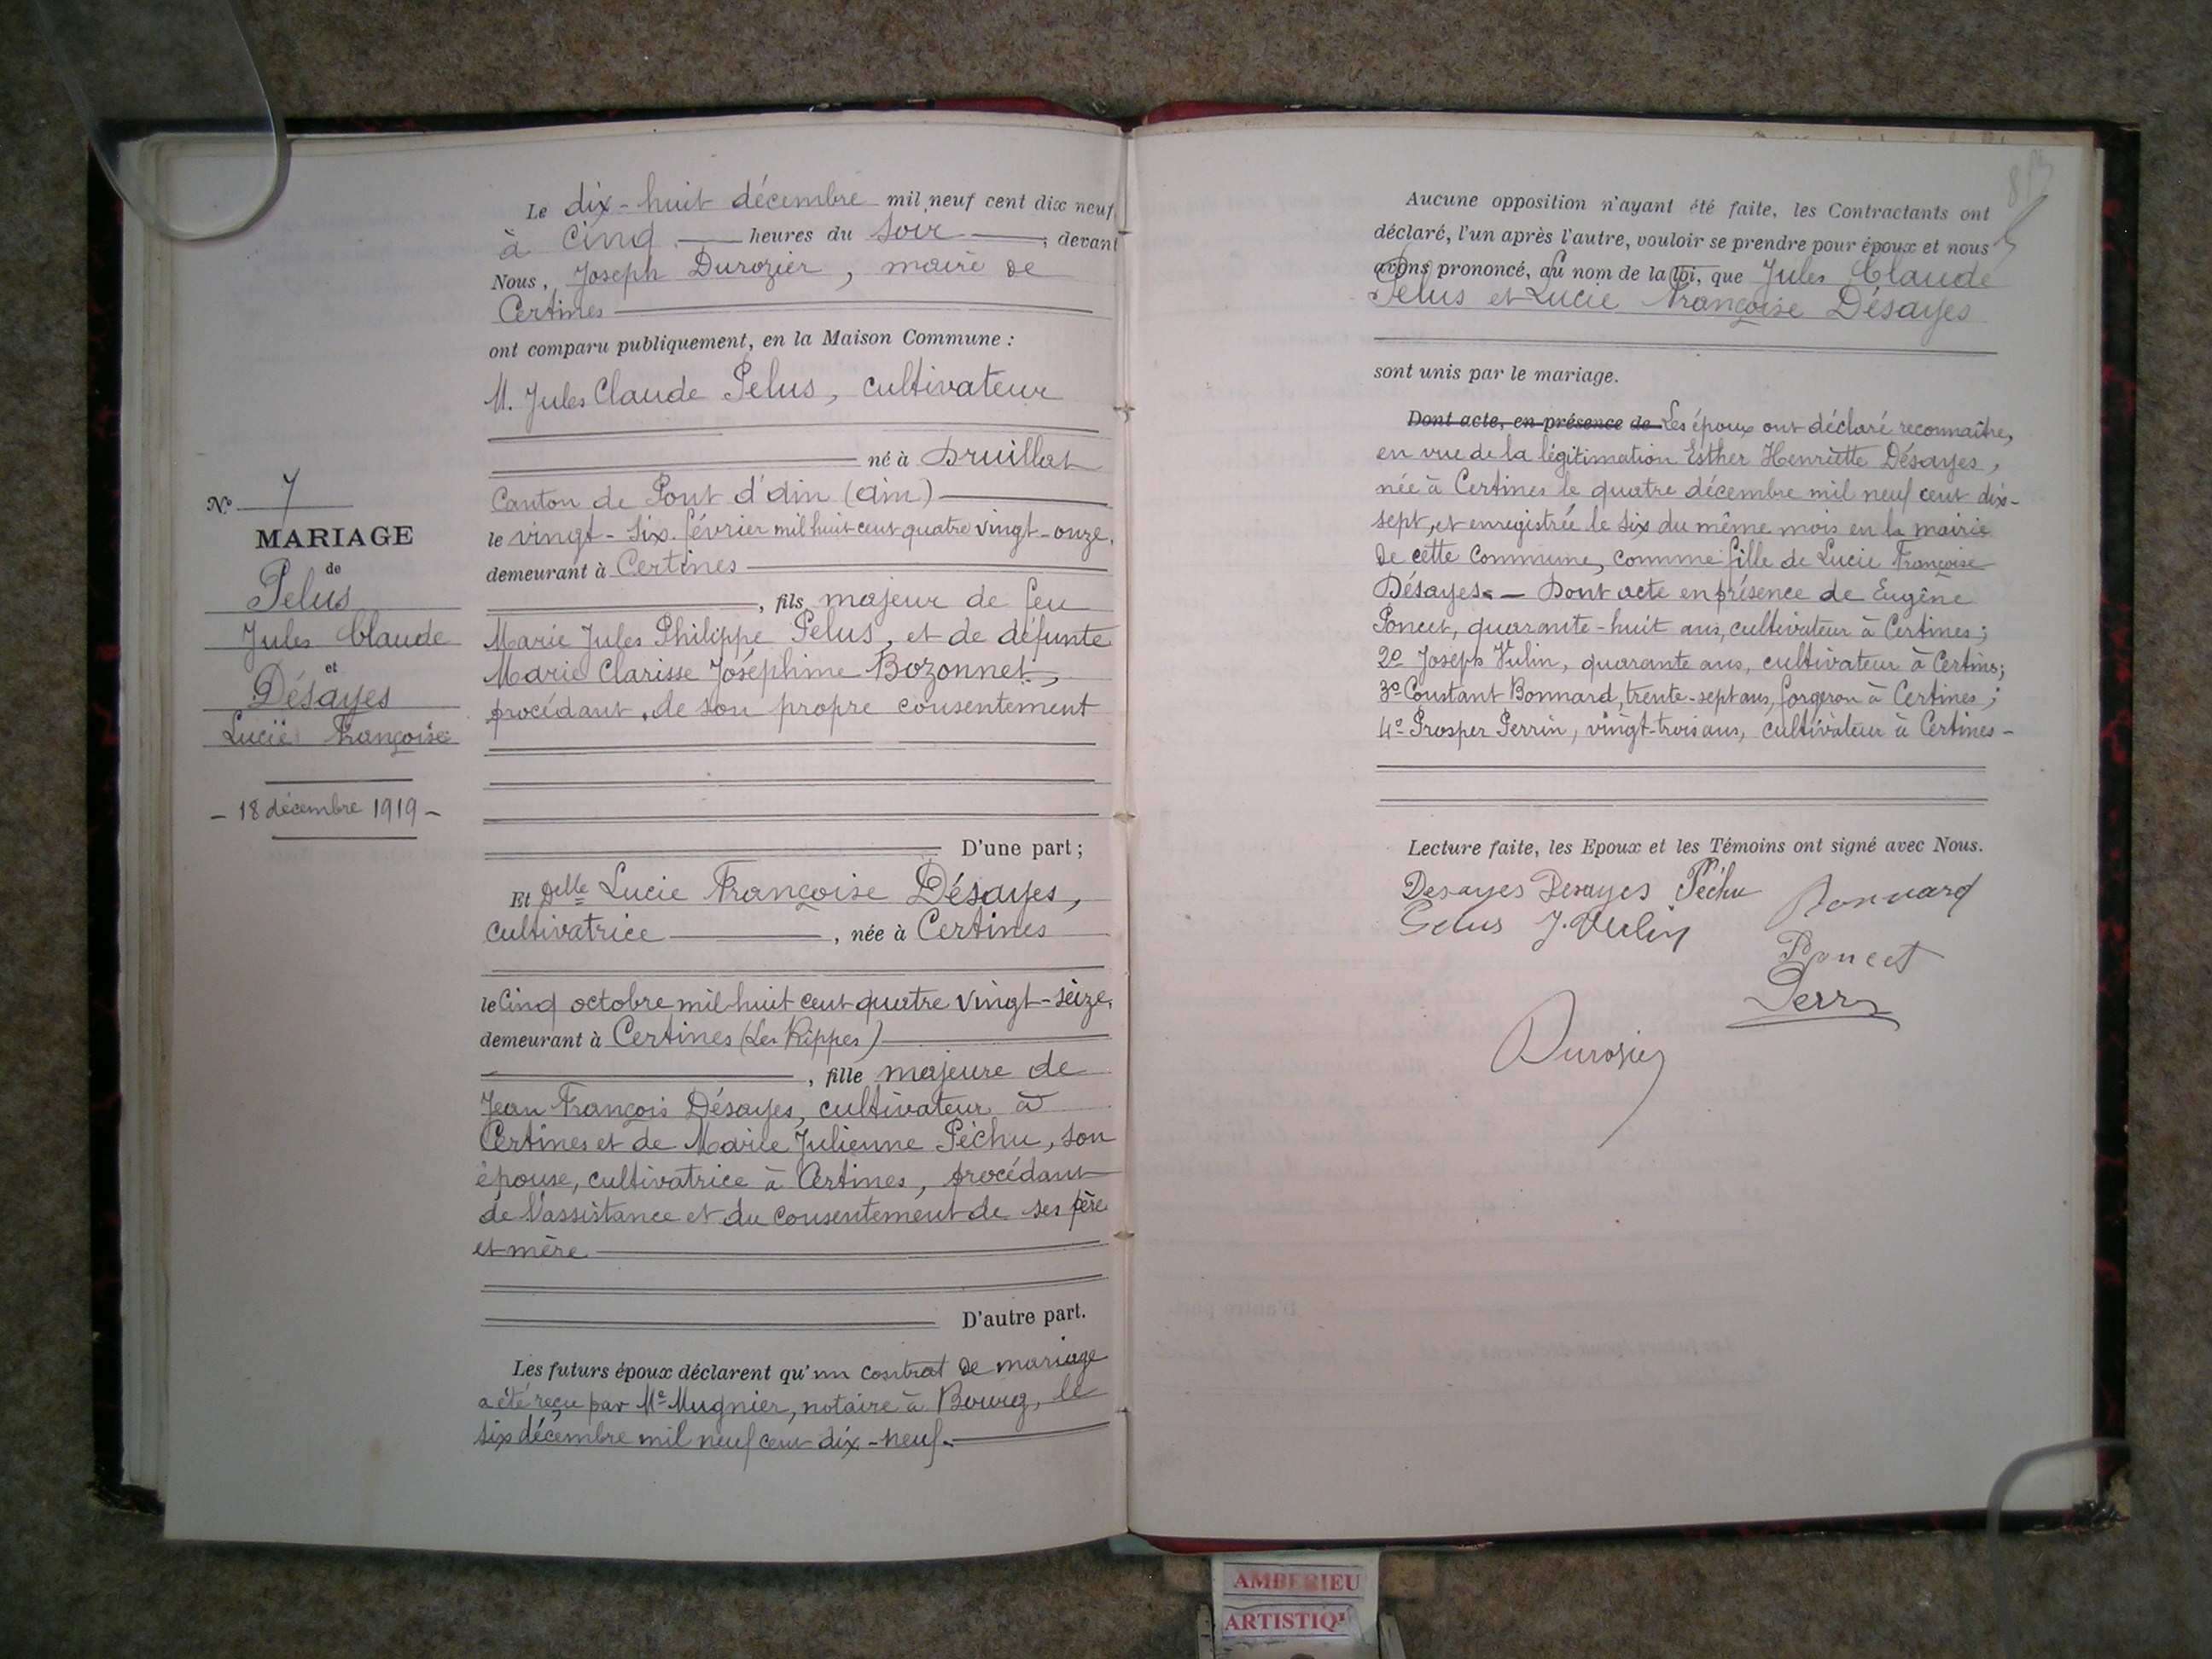 N° 7
MARIAGE
de
Pelus
Jules Claude
et
Désayes
Lucie Françoise
- 18 décembre 1919 -
Le dix-huit décembre mil neuf cent dix neuf
à cinq heures du soir ; devant
Nous, Joseph Durozier, maire de
Certines
ont comparu publiquement, en la Maison Commune :
M. Jules Claude Pelus, cultivateur
né à Druillat
Canton de Pont d'ain (ain)
le vingt-six février mil huit cent quatre vingt-onze,
demeurant à Certines
, fils majeur de feu
Marie Jules Philippe Pelus, et de défunte
Marie Clarisse Joséphine Bozonnet,
procédant de son propre consentement
D'une part ;
Et Delle Lucie Françoise Désayes,
cultivatrice , née à Certines
le cinq octobre mil huit cent quatre vingt-seize,
demeurant à Certines (Les Rippes)
, fille majeure de
Jean François Désayes, cultivateur à
Certines et de Marie Julienne Péchu, son
épouse, cultivatrice à Certines, procédant
de l'assistance et du consentement de ses père
et mère
D'autre part.
Les futurs époux déclarent qu'un contrat de mariage
a été reçu par Me Mugnier, notaire à Bourg, le
six décembre mil neuf cent dix-neuf.
Aucune opposition n'ayant été faite, les Contractants ont
déclaré, l'un après l'autre, vouloir se prendre pour époux et nous
avons prononcé, au nom de la loi, que Jules Claude
Pelus et Lucie Françoise Désayes
sont unis par le mariage.
Dont acte, en présence de Les époux ont déclaré reconnaître,
en vue de la légitimation Esther Henriette Désayes,
née à Certines le quatre décembre mil neuf cent dix-
sept, et enregistrée le six du même mois en la mairie
de cette Commune, comme fille de Lucie Françoise
Désayes. — Dont acte en présence de Eugène
Poncet, quarante-huit ans, cultivateur à Certines ;
2° Joseph Vulin, quarante ans, cultivateur à Certines ;
3° Constant Bonnard, trente-sept ans, forgeron à Certines ;
4° Prosper Perrin, vingt-trois ans, cultivateur à Certines -
Lecture faite, les Epoux et les Témoins ont signé avec Nous.
Desayes Desayes Péchu Bonnard
Pelus J. Vulin
Poncet
Perrin
Durozier
AMBERIEU
ARTISTIQ